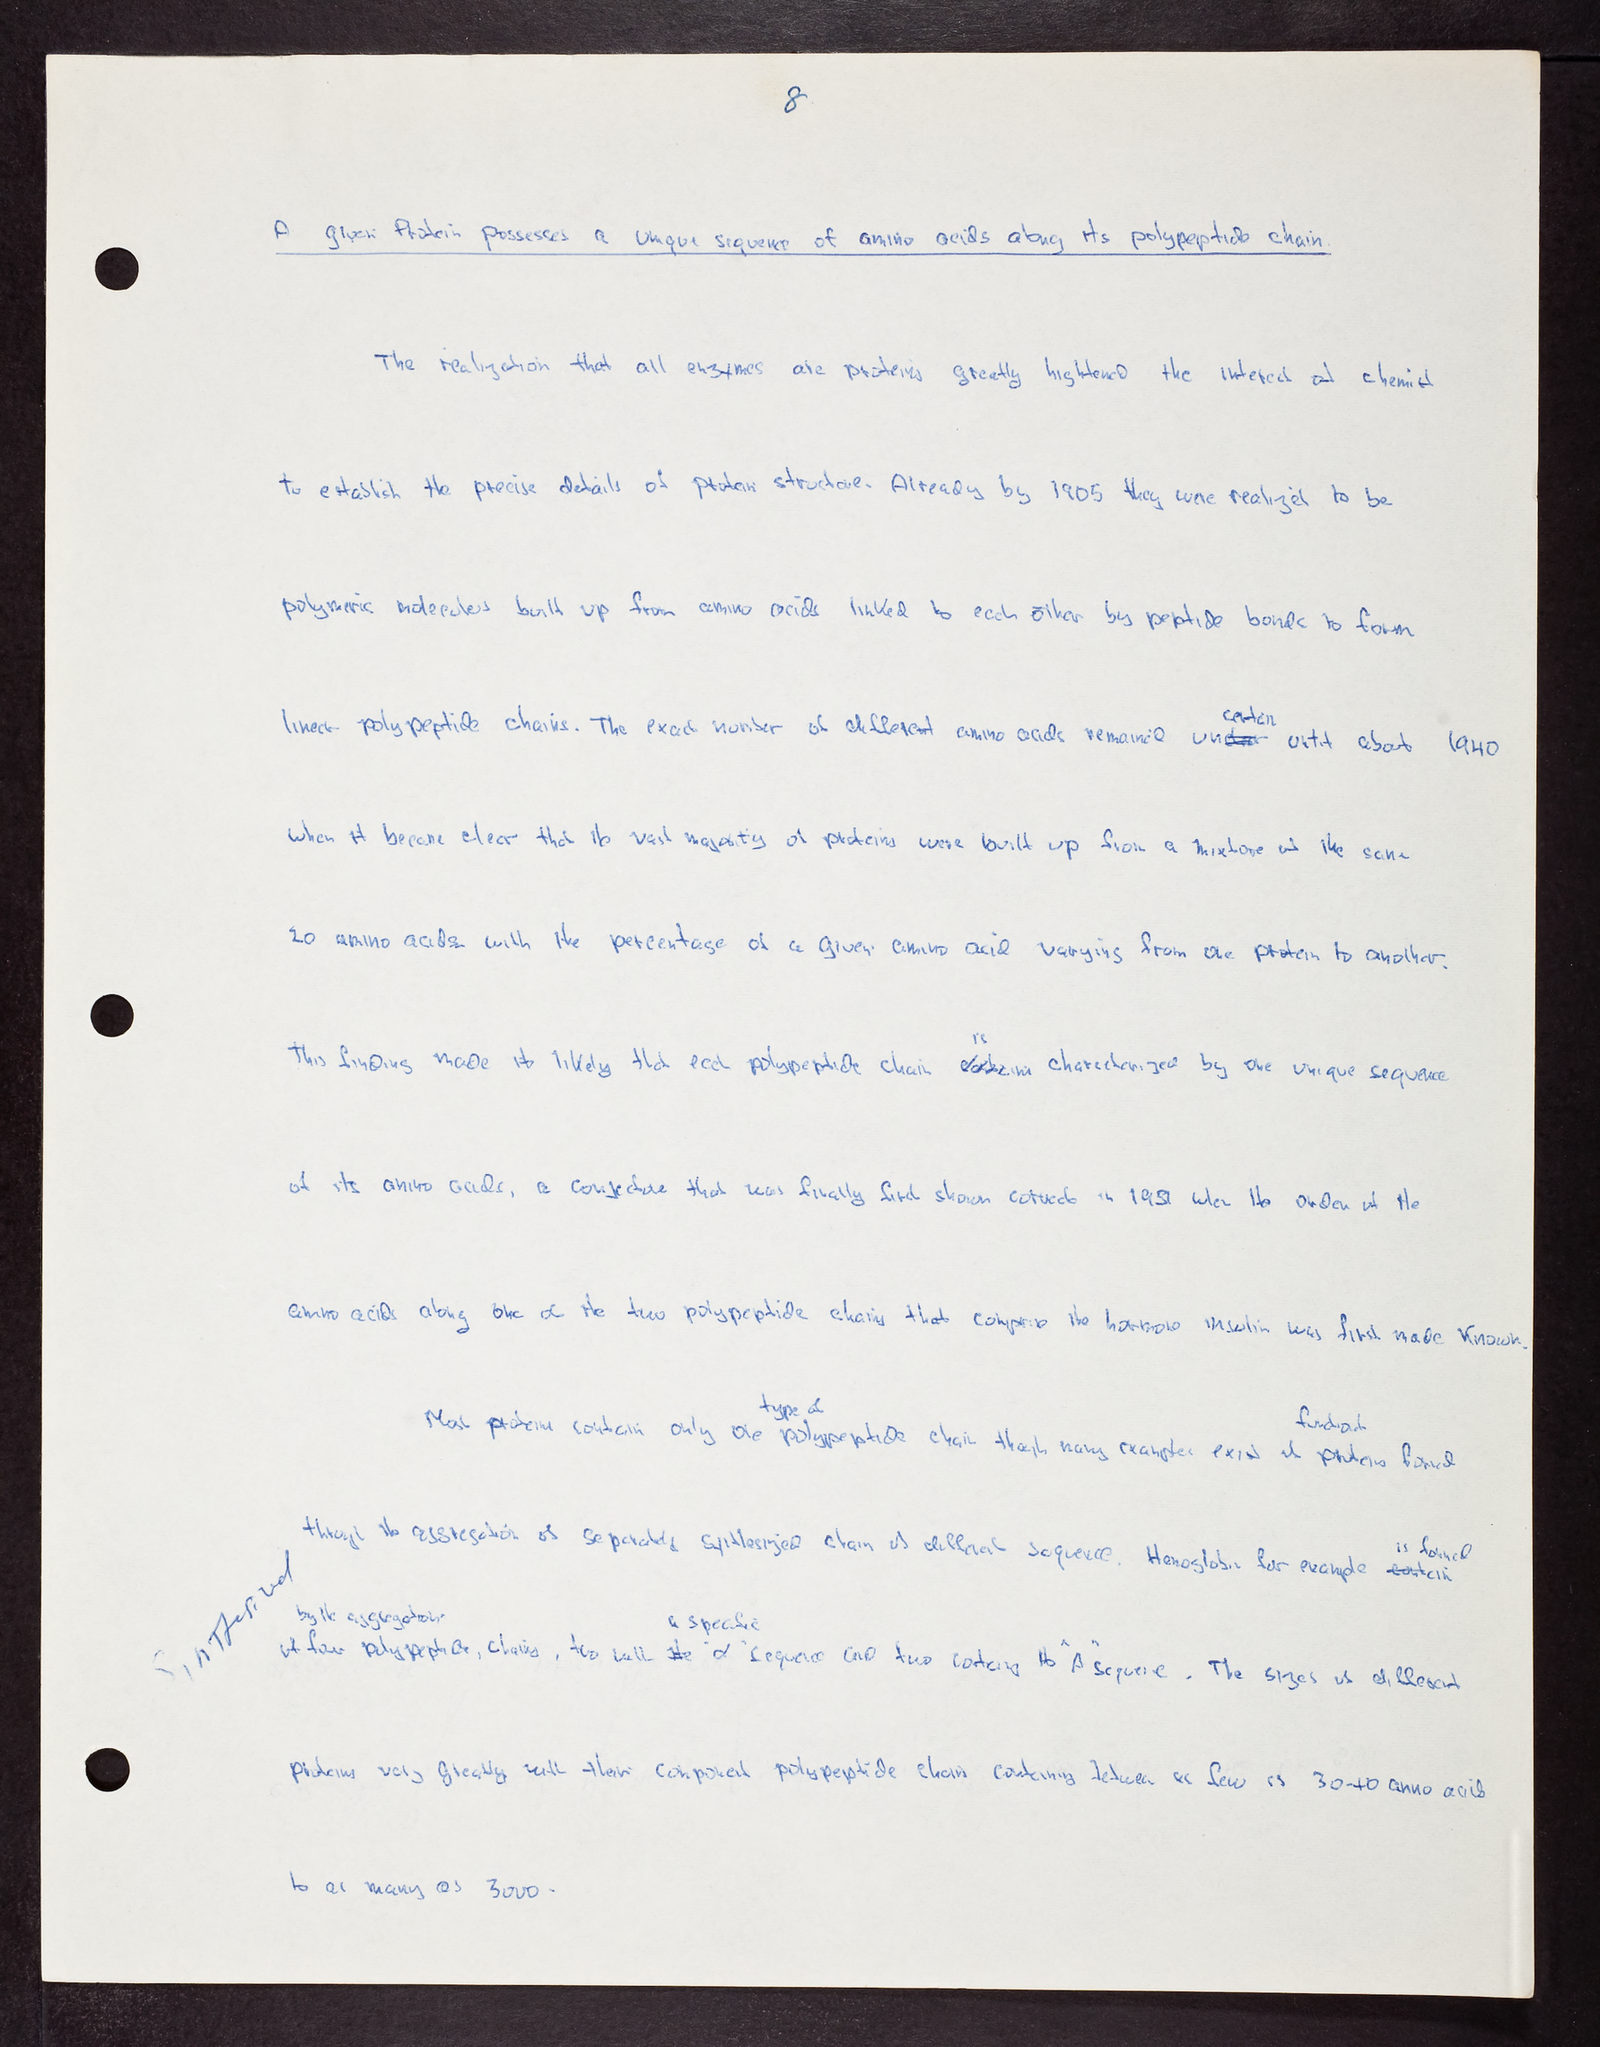 8
A given Protein possesses a unique sequence of amino acids along its polypeptide chain.
The realization that all enzymes are proteins greatly hightened the interest of chemist
to establish the precise details of protein structure. Already by 1905 they were realized to be
polymeric molecules built up from amino acids linked to each other by peptide bonds to form
linear polypeptide chains. The exact number of different amino acids remained un
certain
until about 1940
when it became clear that the vast majority of proteins were built up from a mixture of the same
20 amino acids with the percentage of a given amino acid varying from one protein to another.
This finding made it likely that each polypeptide chain
is
characterized by one unique sequence
of its amino acids, a conjecture that was finally first shown correct in 1951 when the order of the
amino acids along one of the two polypeptide chains that comprise the hormone insulin was first made known.
Most proteins contain only one
type of
polypeptide chain though many examples exist of
functional
proteins formed
through the aggregation of separately synthesized chain of different sequence. Hemoglobin for example
is formed
contain
by the aggregation
of four polypeptide, chains, two with the
a specific
"α" sequence and two containing the "β" sequence. The sizes of different
synthesized
proteins vary greatly with their component polypeptide chain containing between as few as 30-40 amino acids
to as many as 3000.